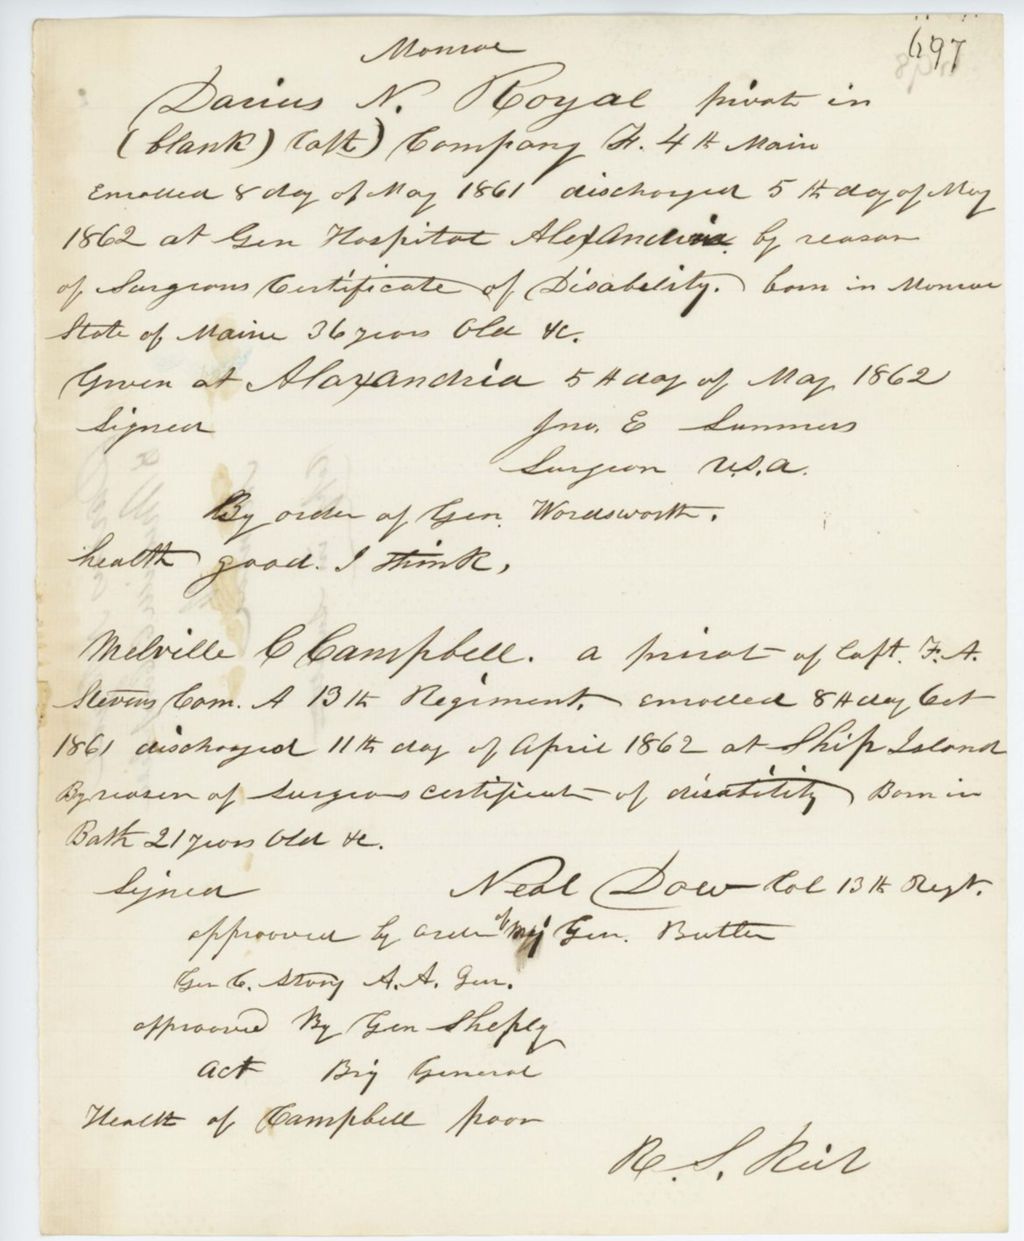 697
Monroe
Darius N. Royal privat in
(blank) Capt) Company F. 4th Main
Enrolled 8 day of May 1861 discharged 5th day of May
1862 at Gen Hospital Alexandria by reason
of Surgeons Certificate of Disability. born in Monroe
State of Maine 36 years Old &c.
Given at Alaxandria 5th day of May 1862
Signed Jno. E Summers
Surgeon U.S.A.
By order of Gen. Wordsworth.
health good. I think,
Melville C Campbell. a privat of Capt. F. A.
Stevens Com. A 13th Regiment. enrolled 8th day Oct
1861 discharged 11th day of April 1862 at Ship Island
By reason of Surgeons certificate of disability Born in
Bath 21 years Old &c.
Signed Neal Dow Col 13th Regt.
approoved by order of Maj Gen. Butler
Geo C. Strong A. A. Gen.
approoved By Gen Sheply
Act Brig General
Health of Campbell poor
R. S.